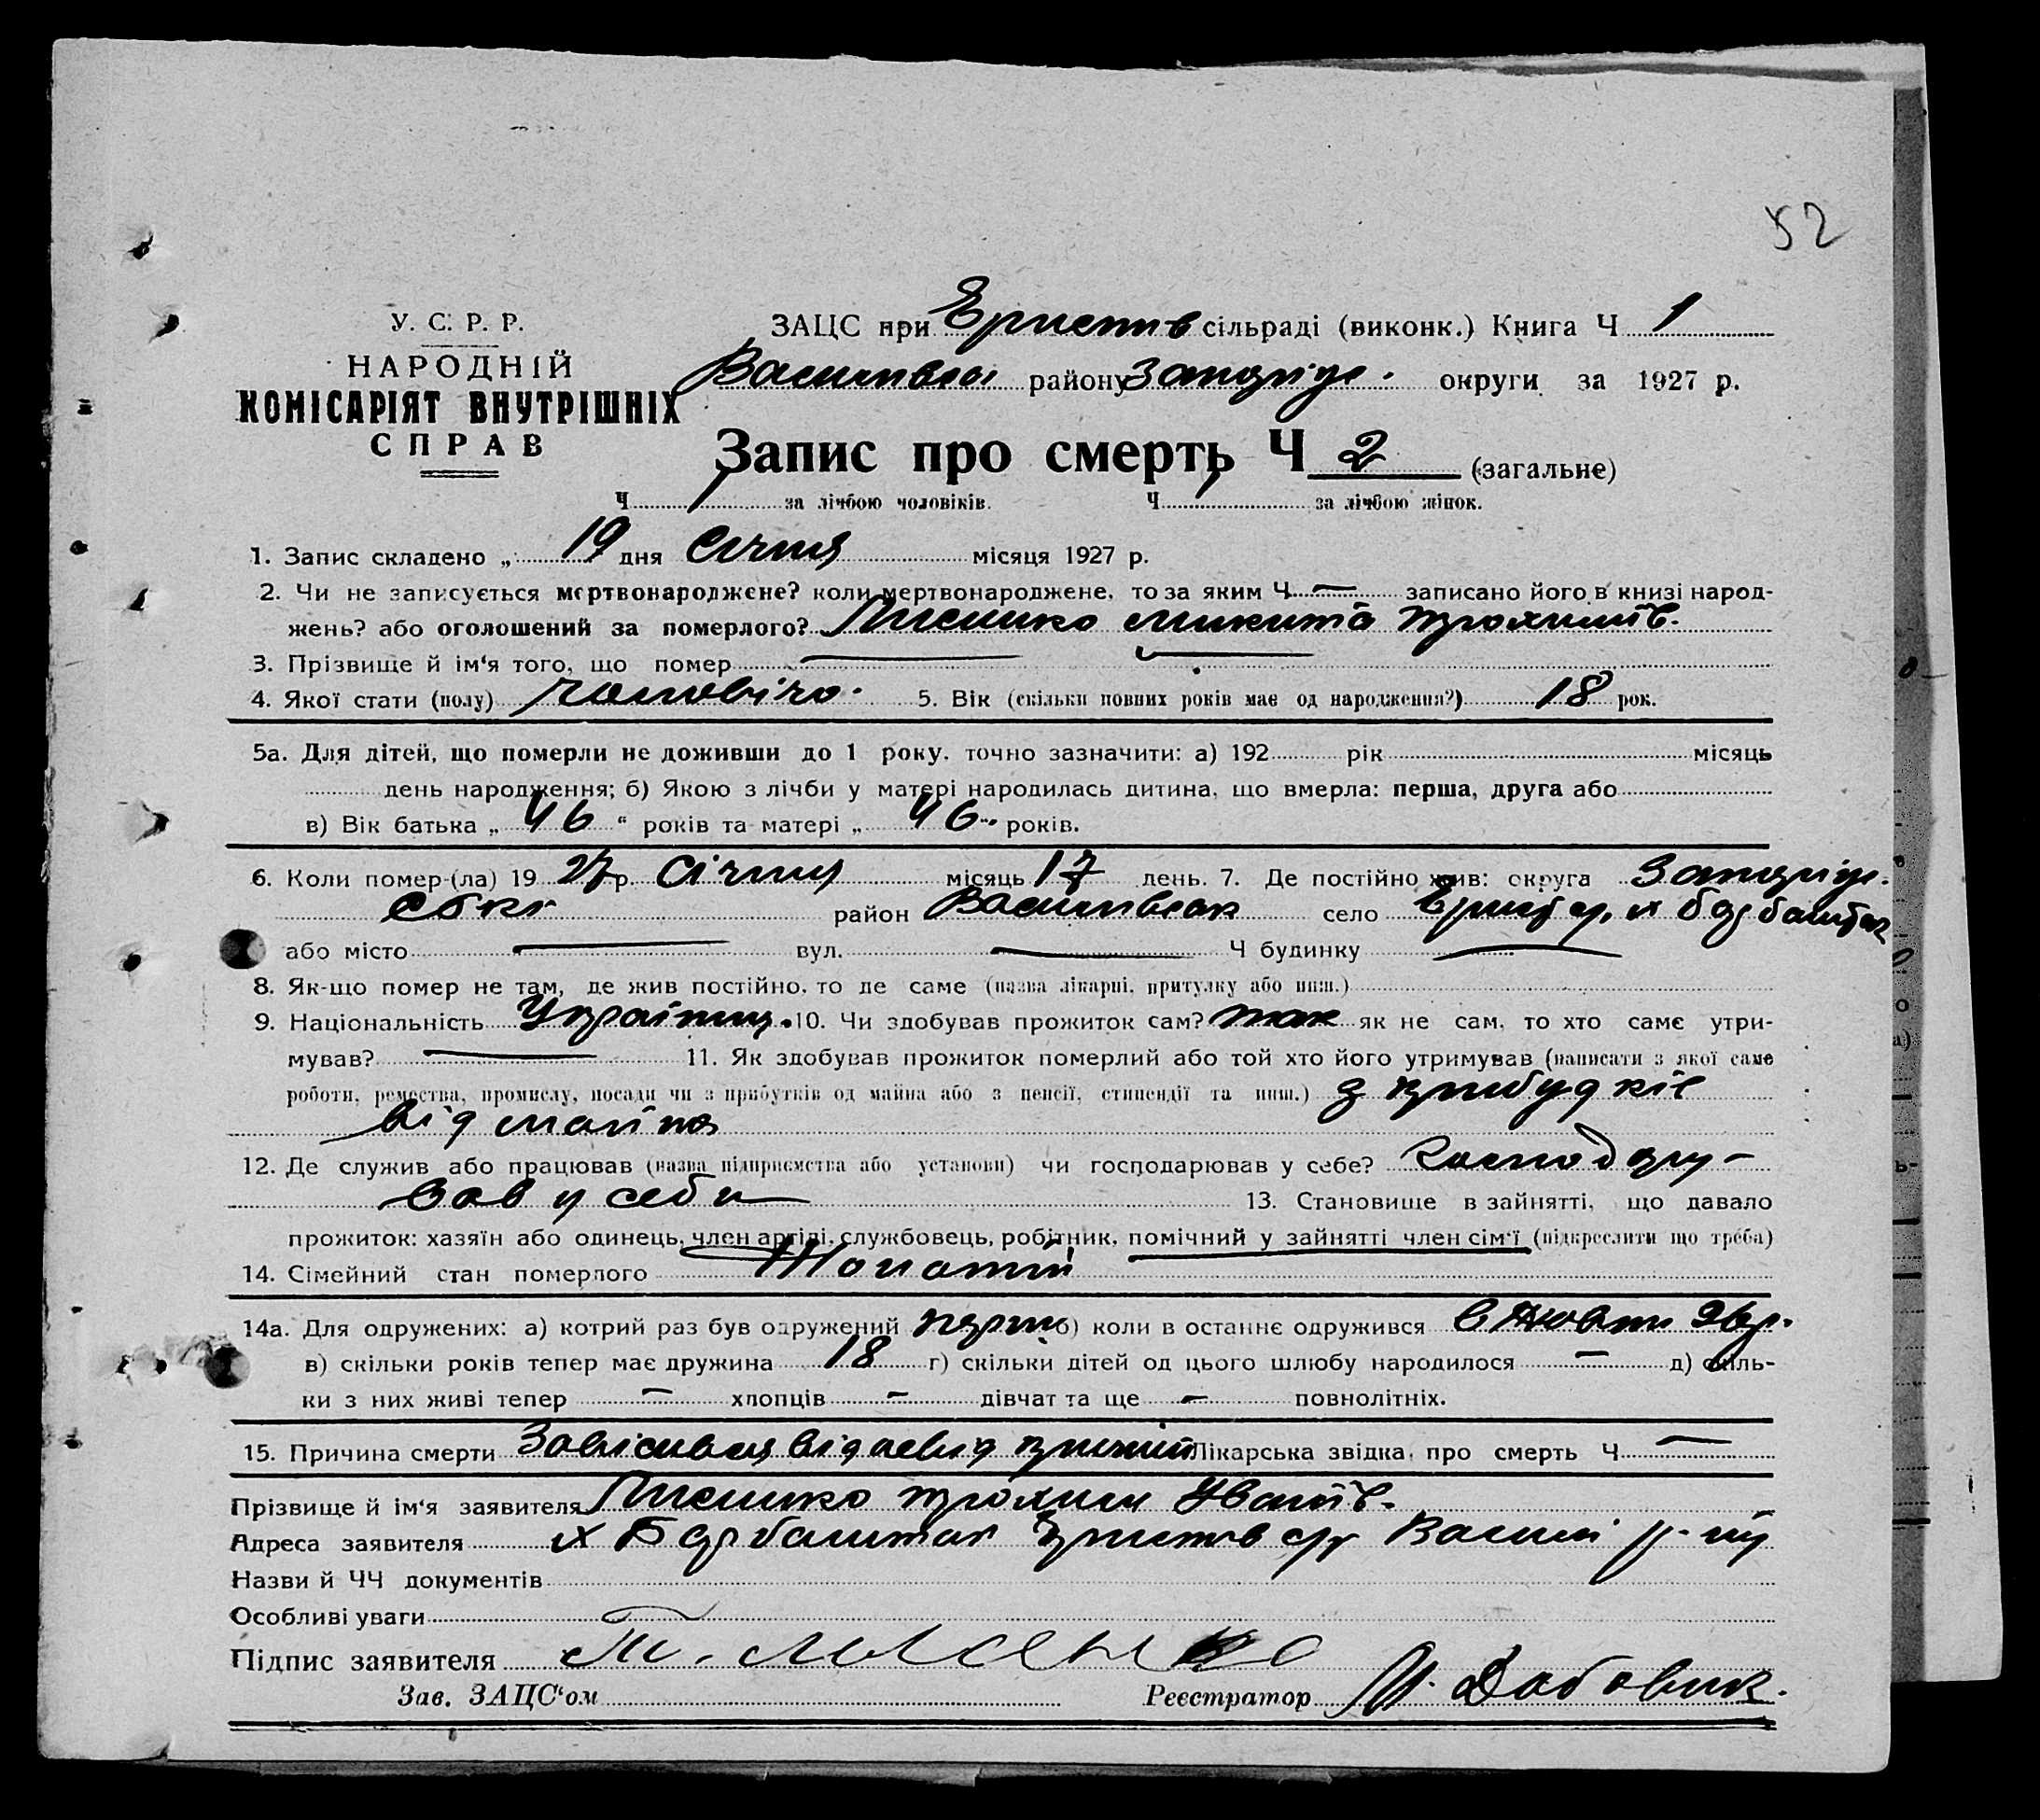 52
У. С. Р. Р.
НАРОДНІЙ
КОМІСАРІЯТ ВНУТРІШНІХ
СПРАВ
ЗАЦС при Еристів сільраді (виконк.) Книга Ч 1
Василівськ району Запоріж. округи за 1927 р.
Запис про смерть Ч 2 (загальне)
Ч 1 за лічбою чоловіків. Ч 1 за лічбою жінок.
1. Запис складено „ 19 дня Січня місяця 1927 р.
2. Чи не записується мертвонароджене? коли мертвонароджене, то за яким Ч — записано його в книзі народ-
жень? або оголошений за померлого? Микита Трохимів.
3. Прізвище й ім'я того, що помер
4. Якої стати (полу) чоловічо. 5. Вік (скільки повних років має од народження?) 18 рок.
5а. Для дітей, що померли не доживши до 1 року. точно зазначити: а) 192 рік місяць
день народження; б) Якою з лічби у матері народилась дитина, що вмерла: перша, друга або
в) Вік батька „ 46 “ років та матері „ 46 “ років.
6. Коли помер-(ла) 19 27 р. Січня місяць 17 день. 7. Де постійно жив: округа Запоріж.
район село
або місто — вул. — Ч будинку —
8. Як-що помер не там, де жив постійно, то де саме (назва лікарні, притулку або инш.)
9. Національність Українц. 10. Чи здобував прожиток сам? так як не сам, то хто саме утри-
мував? — 11. Як здобував прожиток померлий або той хто його утримував (написати з якої саме
роботи, ремества, промислу, посади чи з прибутків од майна або з пенсії, стипендії та инш.) з прибудків
від майна
12. Де служив або працював (назва підприємства або установи) чи господарював у себе? Господарю-
вав у себе 13. Становище в зайнятті, що давало
прожиток: хазяїн або одинець, член артілі, службовець, робітник, помічний у зайнятті член сім'ї (підкреслити що треба)
14. Сімейний стан померлого Жонатий
14а. Для одружених: а) котрий раз був одружений перш б) коли в останнє одружився в Жовтн 26 р.
в) скільки років тепер має дружина 18 г) скільки дітей од цього шлюбу народилося — д) скіль-
ки з них живі тепер — хлопців — дівчат та ще — повнолітніх.
15. Причина смерти Лікарська звідка про смерть Ч —
Прізвище й ім'я заявителя Трохим Іванів.
Адреса заявителя х
Назви й ЧЧ документів
Особливі уваги
Підпис заявителя Т.
Зав. ЗАЦС'ом Реєстратор